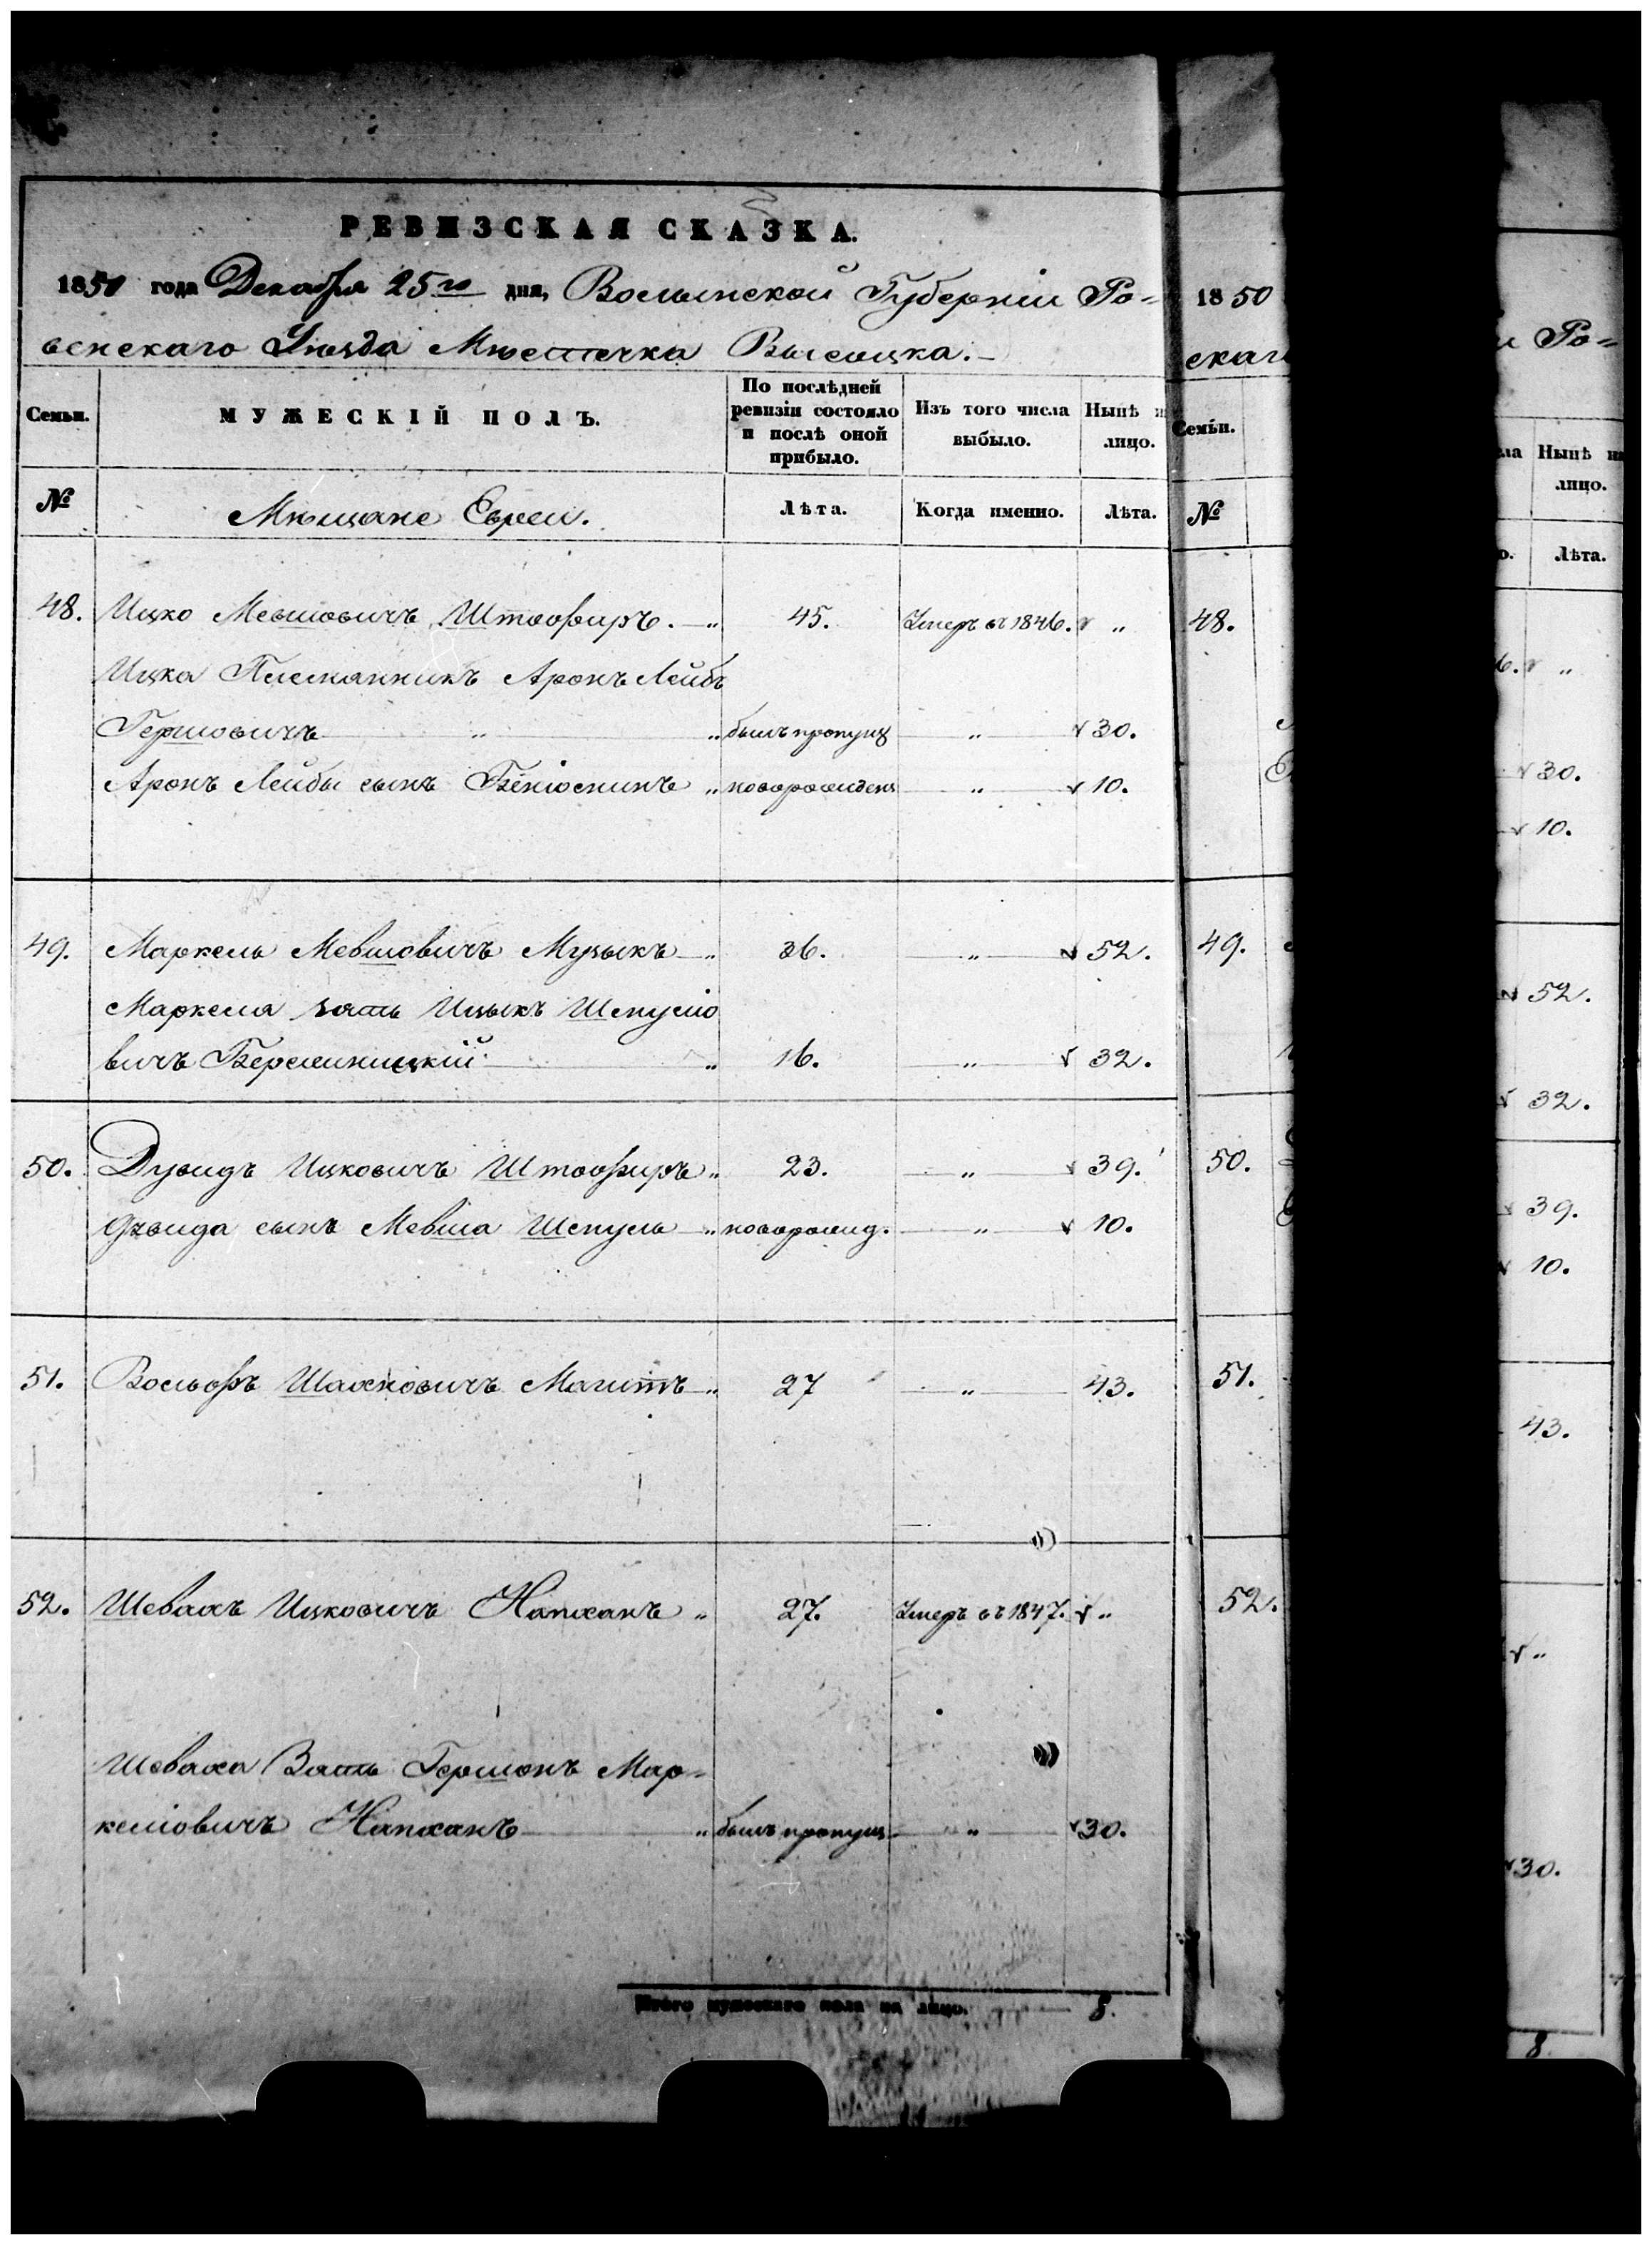 РЕВИЗСКАЯ СКАЗКА.
1850 года Декабря 25го дня, Волынской Губерніи Ро-
венскаго Уѣзда Мѣстечка Высоцка.
Семьи. МУЖЕСКІЙ ПОЛЪ. По послѣдней ревизіи состояло и послѣ оной прибыло. Изъ того числа выбыло. Нынѣ на лицо.
№ Мѣщане Евреи. Лѣта. Когда именно. Лѣта.
48. Ицко Мевшовичъ Штофиръ. „ 45. Умеръ въ 1846. „
Ицка Племянникъ Аронъ Лейбъ
Гершовичъ „ „ былъ пропущ „ 30.
Аронъ Лейбы сынъ Беніоминъ „ новорожденъ „ 10.
49. Маркель Мевшовичъ Музыкъ „ 36. „ 52.
Маркеля зять Ицыкъ Шепуліо
вичъ Бережницкій „ 16. „ 32.
50. Дувидъ Ицковичъ Штофиръ „ 23. „ 39.
Дувида сынъ Мевша Шепуль „ новорожд. „ 10.
51. Вольфъ Шаиковичъ Магитъ „ 27 „ 43.
52. Шевахъ Ицковичъ Напханъ „ 27. Умеръ въ 1847. „
Шеваха Зять Гершонъ Мар-
келіовичъ Напханъ „ былъ пропущ. „ 30.
Итого мужескаго пола на лицо. 8.
1850
скаго
Семьи.
№
48.
49.
50.
51.
52.
Ро-
Нынѣ на
лицо.
Лѣта.
6. „
30.
10.
52.
32.
39.
10.
43.
„
30.
8